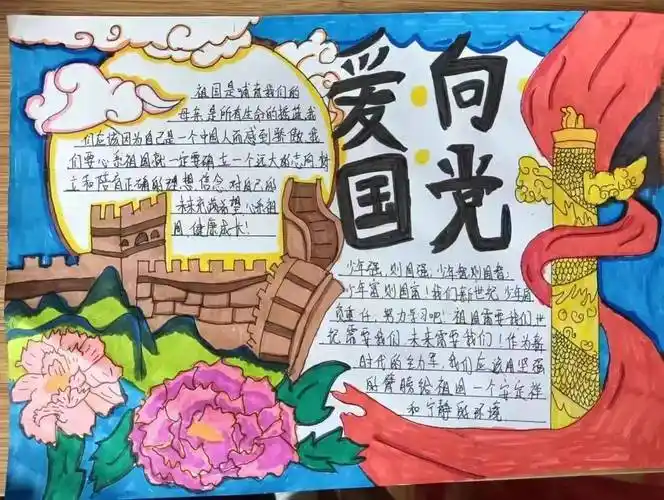 爱国
向党
祖国是哺育我们的
母亲,是所有生命的摇篮,我
们应该因为自己是一个中国人而感到骄傲,我
们要心系祖国,就一定要确立一个远大的志向,树
立和培育正确的理想信念,对自己的
未来充满希望,心系祖
国,健康成长!
少年强,则国强;少年智,则国智;
少年富则国富!我们新世纪少年肩
负责任,努力学习吧!祖国需要我们,世
纪需要我们,未来需要我们!作为新
时代的生力军,我们应该用坚强
的臂膀给祖国一个安定祥
和宁静的环境